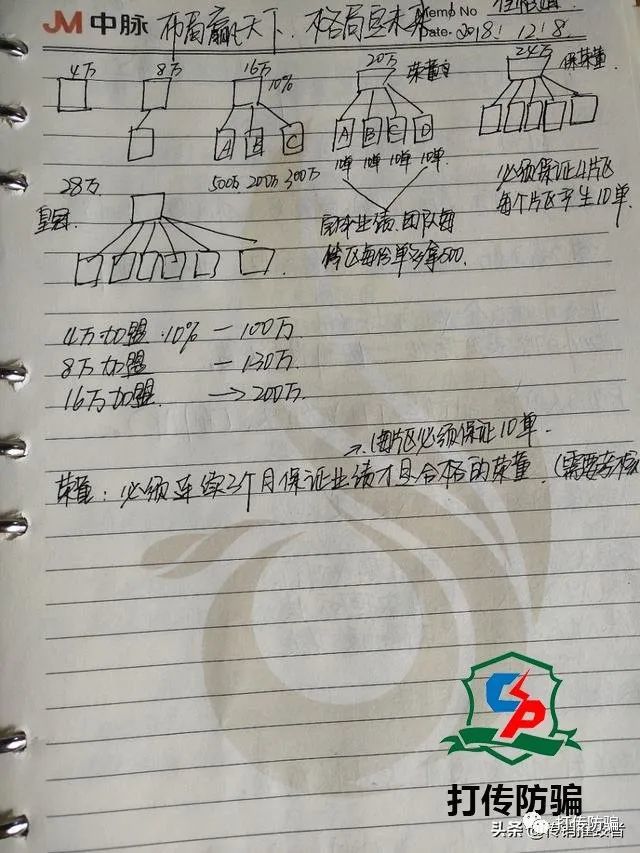 JM中脉 布局赢天下.格局定未来 Memo No
Date. 2018.12.8.
4万 8万 16万 20万 荣董 24万 保荣董
10%
A B C A B C D
500万 200万 300万 10单 10单 10单 10单. 必须保证4片区
每个片区产生10单.
28万
皇冠 完成业绩.团队每
片区每份单多拿500.
4万加盟.10% — 100万
8万加盟 — 130万.
16万加盟. → 200万.
→(每片区必须保证10单.
荣董:必须连续3个月保证业绩才是合格的荣董.(需要考核
CP
打传防骗
头条@传销推毁者
打传防骗